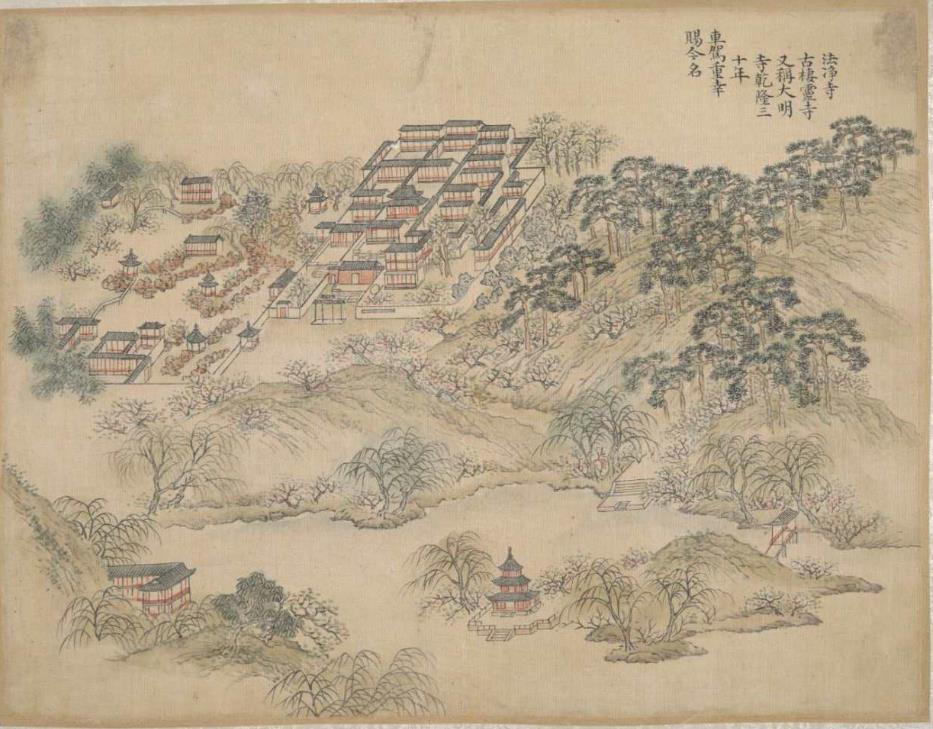 法淨寺
古棲靈寺
又稱大明
寺乾隆三
十年
車駕重幸
賜今名